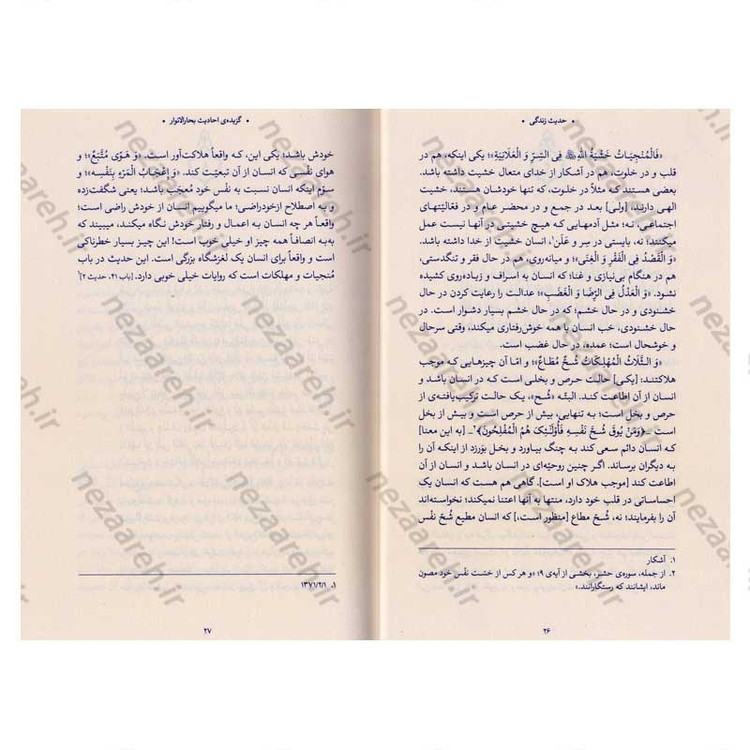 • حدیث زندگی •
«فَالمُنجِیاتُ خَشیَةُ اللهِ فِی السِّرِّ وَ العَلانِیَةِ»؛ یکی اینکه، هم در
قلب و در خلوت، هم در آشکار از خدای متعال خشیت داشته باشد.
بعضی هستند که مثلاً در خلوت، که تنها خودشان هستند، خشیت
الهی دارند، [ولی] بعد در جمع و در محضر عام و در فعالیّتهای
اجتماعی، نه؛ مثل آدمهایی که هیچ خشیتی در آنها نیست عمل
میکنند؛ نه، بایستی در سِر و عَلَن۱، انسان خشیت از خدا داشته باشد.
«وَ القَصدُ فِی الفَقرِ وَ الغِنی»؛ و میانه‌روی، هم در حال فقر و تنگدستی،
هم در هنگام بی‌نیازی و غنا؛ که انسان به اسراف و زیاده‌روی کشیده
نشود. «وَ العَدلُ فِی الرِّضا وَ الغَضَبِ»؛ عدالت را رعایت کردن در حال
خشنودی و در حال خشم؛ که در حال خشم بسیار دشوار است. در
حال خشنودی، خب انسان با همه خوش‌رفتاری میکند، وقتی سرحال
و خوشحال است؛ عمده، در حال غضب است.
«وَ الثَّلاثُ المُهلِکاتُ شُحٌّ مُطاعٌ»؛ و امّا آن چیزهایی که موجب
هلاکتند: [یکی] حالت حرص و بخلی است که در انسان باشد و
انسان از آن اطاعت کند. البتّه «شُح»، یک حالت ترکیب‌یافته‌ی از
حرص و بخل است؛ به تنهایی، بیش از حرص است و بیش از بخل
است ـ﴿وَمَن یُوقَ شُحَّ نَفسِهِ فَأُولٰئِکَ هُمُ المُفلِحُونَ﴾۲ـ [به این معنا]
که انسان دائم سعی کند به چنگ بیاورد و بخل بوَرزد از اینکه آن را
به دیگران برساند. اگر چنین روحیّه‌ای در انسان باشد و انسان از آن
اطاعت کند [موجب هلاک او است]. گاهی هم هست که انسان یک
احساساتی در قلب خود دارد، منتها به آنها اعتنا نمیکند؛ نخواسته‌اند
آن را بفرمایند؛ نه، شُحّ مطاع [منظور است،] که انسان مطیع شُحّ نفْس
۱. آشکار
۲. از جمله، سوره‌ی حشر، بخشی از آیه‌ی ۹؛ «و هر کس از خسّت نفْس خود مصون
ماند، ایشانند که رستگارانند.»
۲۶
• گزیده‌ی احادیث بحارالانوار •
خودش باشد؛ یکی این، که واقعاً هلاکت‌آور است. «وَ هَویً مُتَّبَعٌ»؛ و
هوای نفْسی که انسان از آن تبعیّت کند. «وَ إعجابُ المَرءِ بِنَفسِهِ»؛ و
سوّم اینکه انسان نسبت به نفْس خود مُعجَب باشد؛ یعنی شگفت‌زده
و به اصطلاح ازخودراضی؛ ما میگوییم انسان از خودش راضی است؛
واقعاً هر چه انسان به اعمال و رفتار خودش نگاه میکند، میبیند که
به به انصافاً همه چیز او خیلی خوب است! این چیز بسیار خطرناکی
است و واقعاً برای انسان یک لغزشگاه بزرگی است. این حدیث در باب
مُنجیات و مهلکات است که روایات خیلی خوبی دارد. [باب ۴۱، حدیث ۲]۱
۱. ۱۳۷۱/۲/۱
۲۷
nezaareh.ir